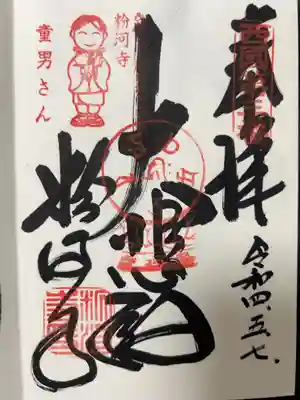 奉拝
西国第三番
令和四.五.七.
大悲殿
粉河寺
粉河寺
童男さん